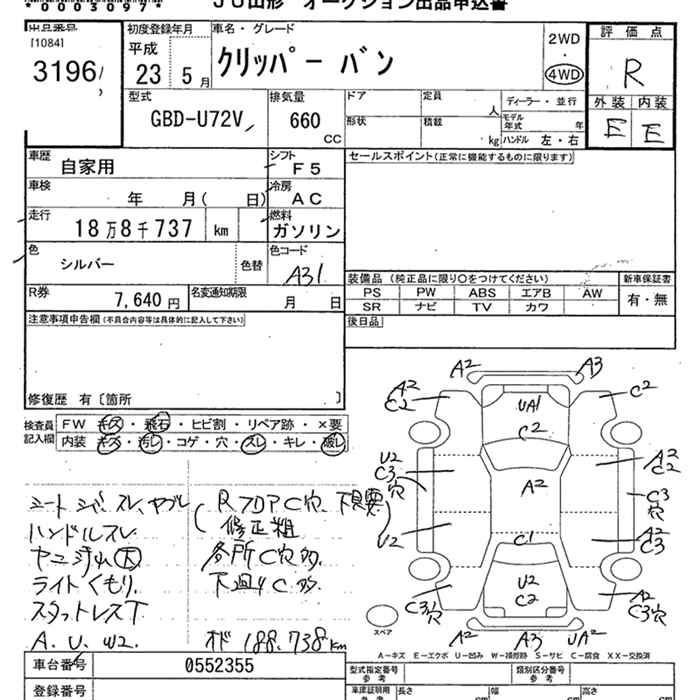 *0005097*
JU山形 オークション出品申込書
出品番号
[1084]
3196
初度登録年月
平成
23 5月
車名・グレード
クリッパー バン
2WD
・
4WD
評価点
R
外装 内装
E E
型式
GBD-U72V
排気量
660
CC
ドア
形状
定員
人
積載
kg
ディーラー・並行
モデル年式 年
ハンドル 左・右
車歴
自家用
シフト
F5
セールスポイント(正常に機能するものに限ります)
車検
年 月( 日)
冷房
AC
走行
18万8千737 km
燃料
ガソリン
色
シルバー
色替
色コード
A31
R券
7,640円
名変通知期限
月 日
装備品(純正品に限り○をつけてください)
PS PW ABS エアB AW
SR ナビ TV カワ
新車保証書
有・無
後日品
注意事項申告欄(不具合内容等は具体的に記入して下さい)
修復歴 有〔箇所 〕
検査員
記入欄
FW キズ・飛石・ヒビ割・リペア跡・×要
内装 キズ・汚れ・コゲ・穴・スレ・キレ・破レ
シート シミ、スレ、ヤブレ
ハンドルスレ
ヤニ汚れ大
ライトくもり
スタットレス下
A.U.W2
RフロアC穴、下見要
修正粗
各所C穴多
下廻りC多
オド188.738km
A2 A3
A2 C2
C2
UA1
C2
U2 C3 穴
A2 C2
A2
C3 穴
U2
C1
A2 C3
U2 C2
C3穴
A2 C3穴
スペア
A2 A3 UA2
A-キズ E-エクボ U-凹み W-補修跡 S-サビ C-腐食 XX-交換済
車台番号
0552355
登録番号
型式指定番号
参考
類別区分番号
参考
車庫証明用
参考
長さ cm
幅 cm
高さ cm